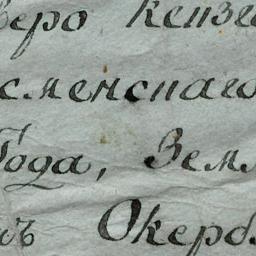 веро кензе
сменснаго
Года, Земл
въ Окерб